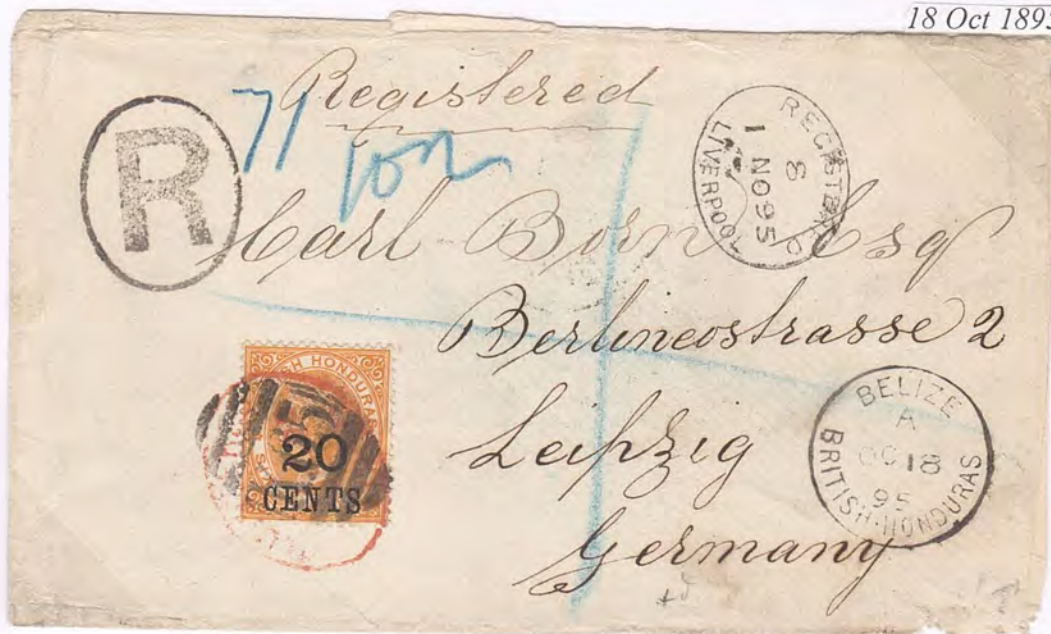 18 Oct 1895
Registered
71
R
REGISTERED
8
1 NO 95
LIVERPOOL
Carl Born Esq
Berlinerstrasse 2
Leipzig
Germany
HONDURAS
20
CENTS
BELIZE
A
OC 18
95
BRITISH-HONDURAS